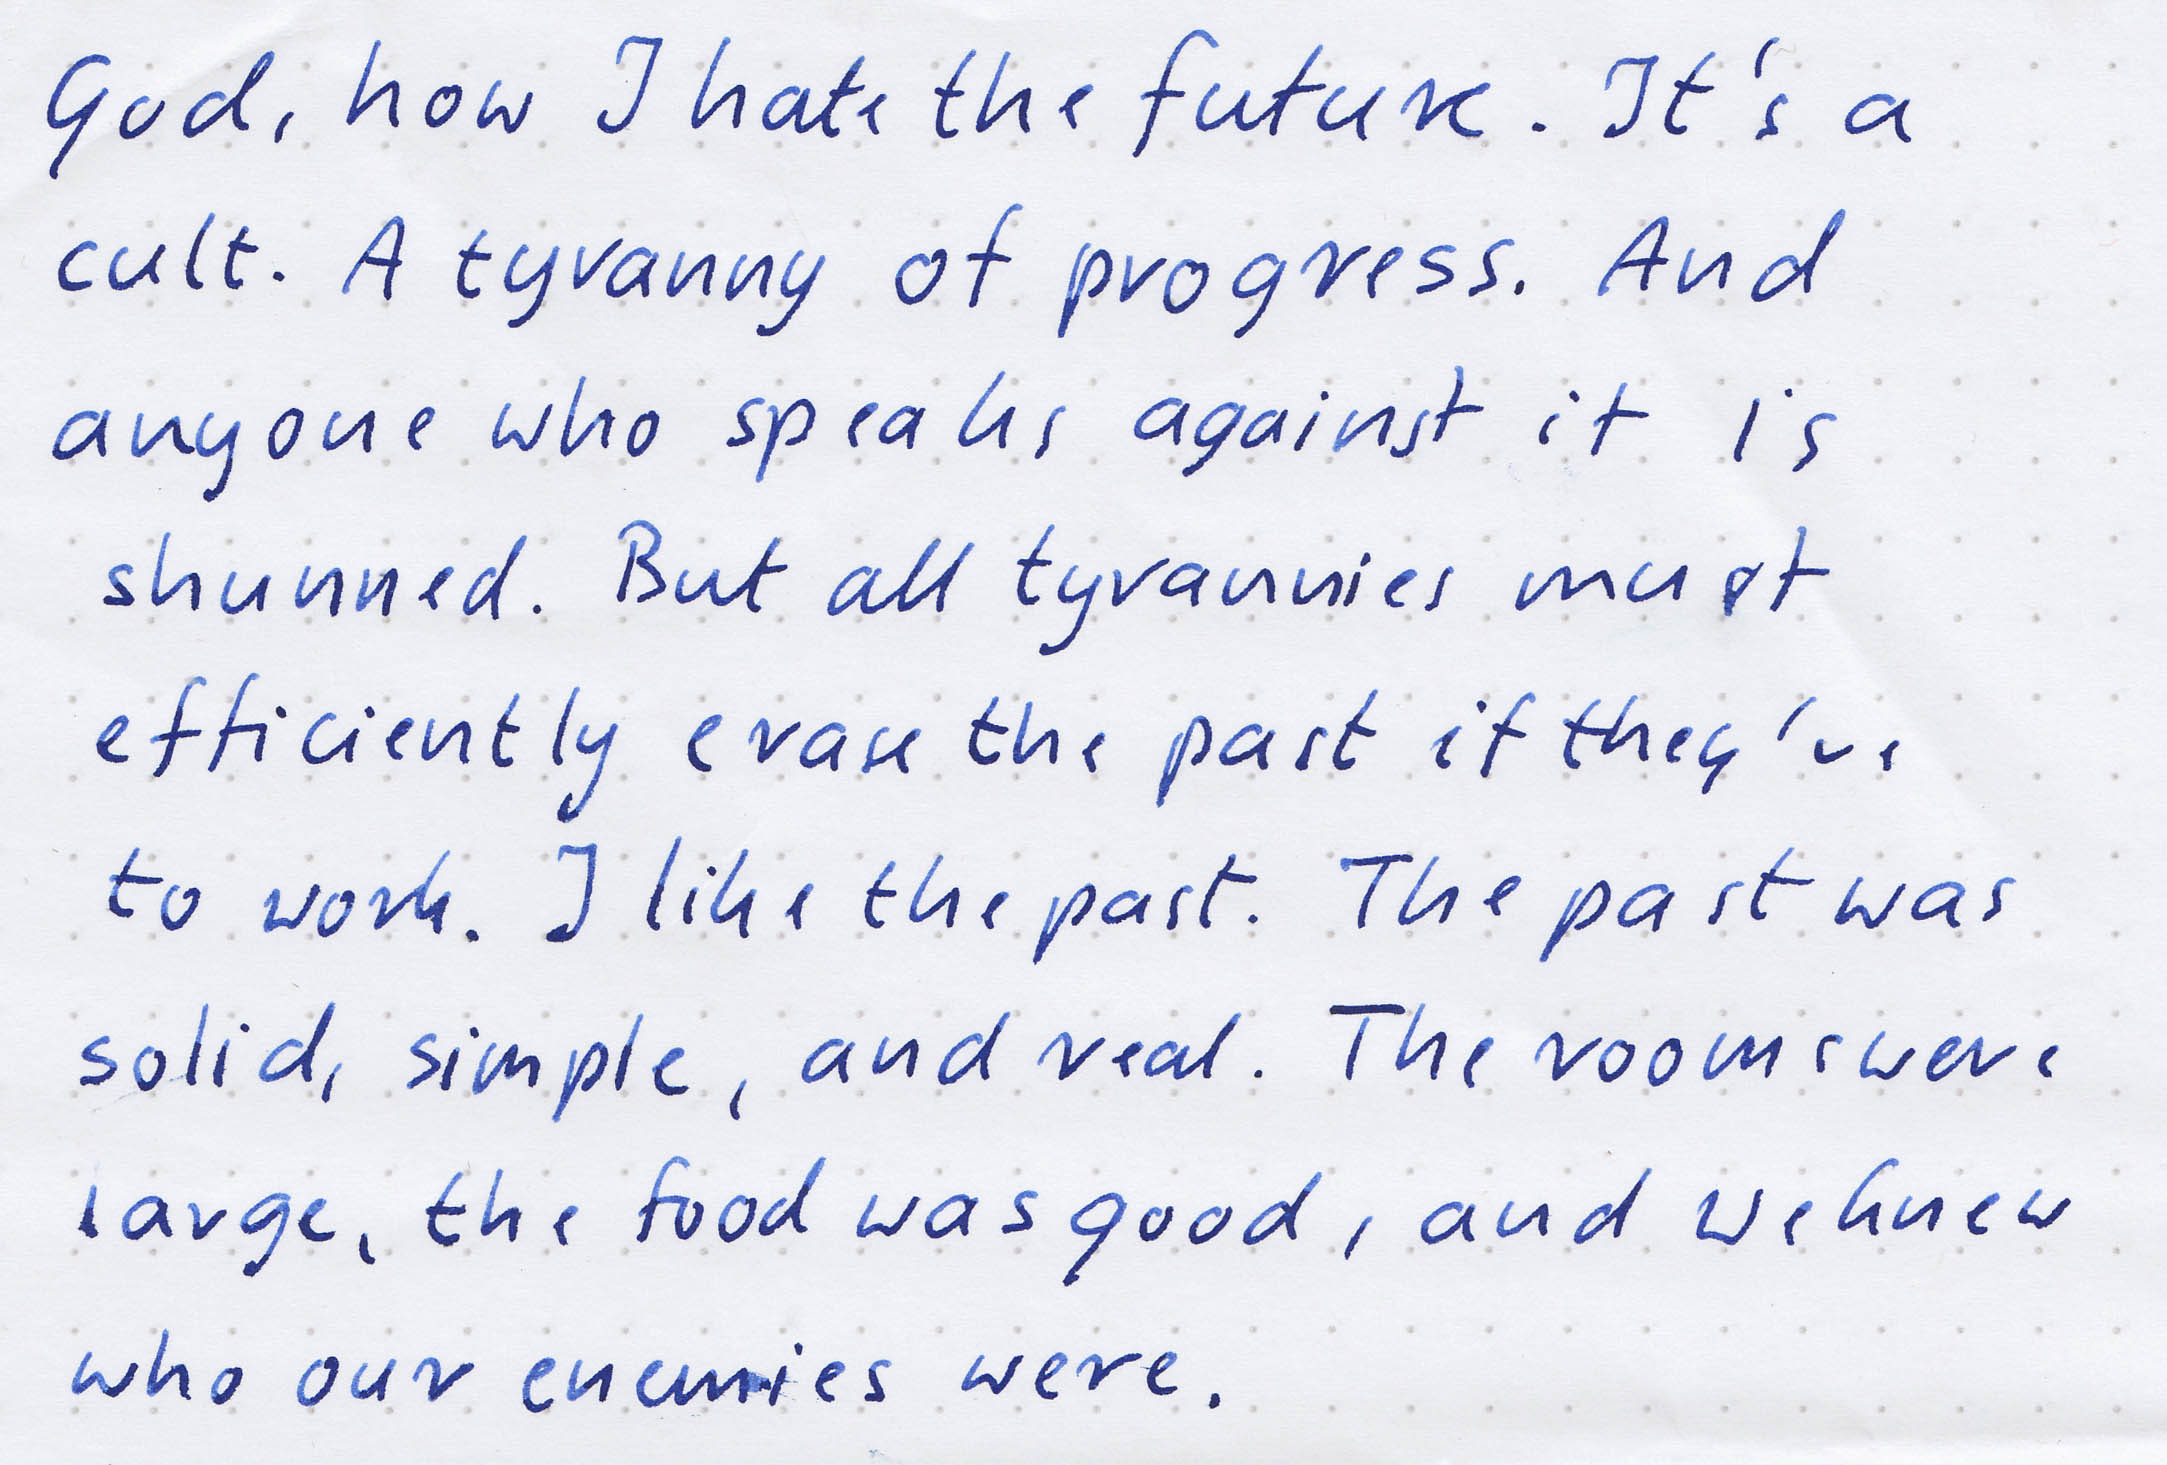 God, how I hate the future. It's a
cult. A tyranny of progress. And
anyone who speaks against it is
shunned. But all tyrannies must
efficiently erase the past if they've
to work. I like the past. The past was
solid, simple, and real. The rooms were
large, the food was good, and we knew
who our enemies were.